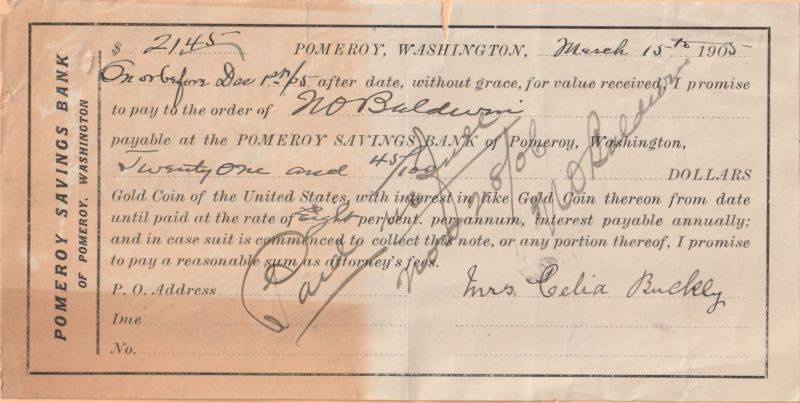 POMEROY SAVINGS BANK
OF POMEROY, WASHINGTON
$ 21 45 POMEROY, WASHINGTON, March 15th 1905
On or before Dec 1st /05 after date, without grace, for value received, I promise
to pay to the order of N O Baldwin
payable at the POMEROY SAVINGS BANK of Pomeroy, Washington,
Twenty One and 45/100 DOLLARS
Gold Coin of the United States, with interest in like Gold Coin thereon from date
until paid at the rate of Eight per cent. per annum, interest payable annually:
and in case suit is commenced to collect this note, or any portion thereof, I promise
to pay a reasonable sum as attorney's fees.
P. O. Address
Mrs. Celia Buckly
Due
No.
Paid in full
28/06
N O Baldwin